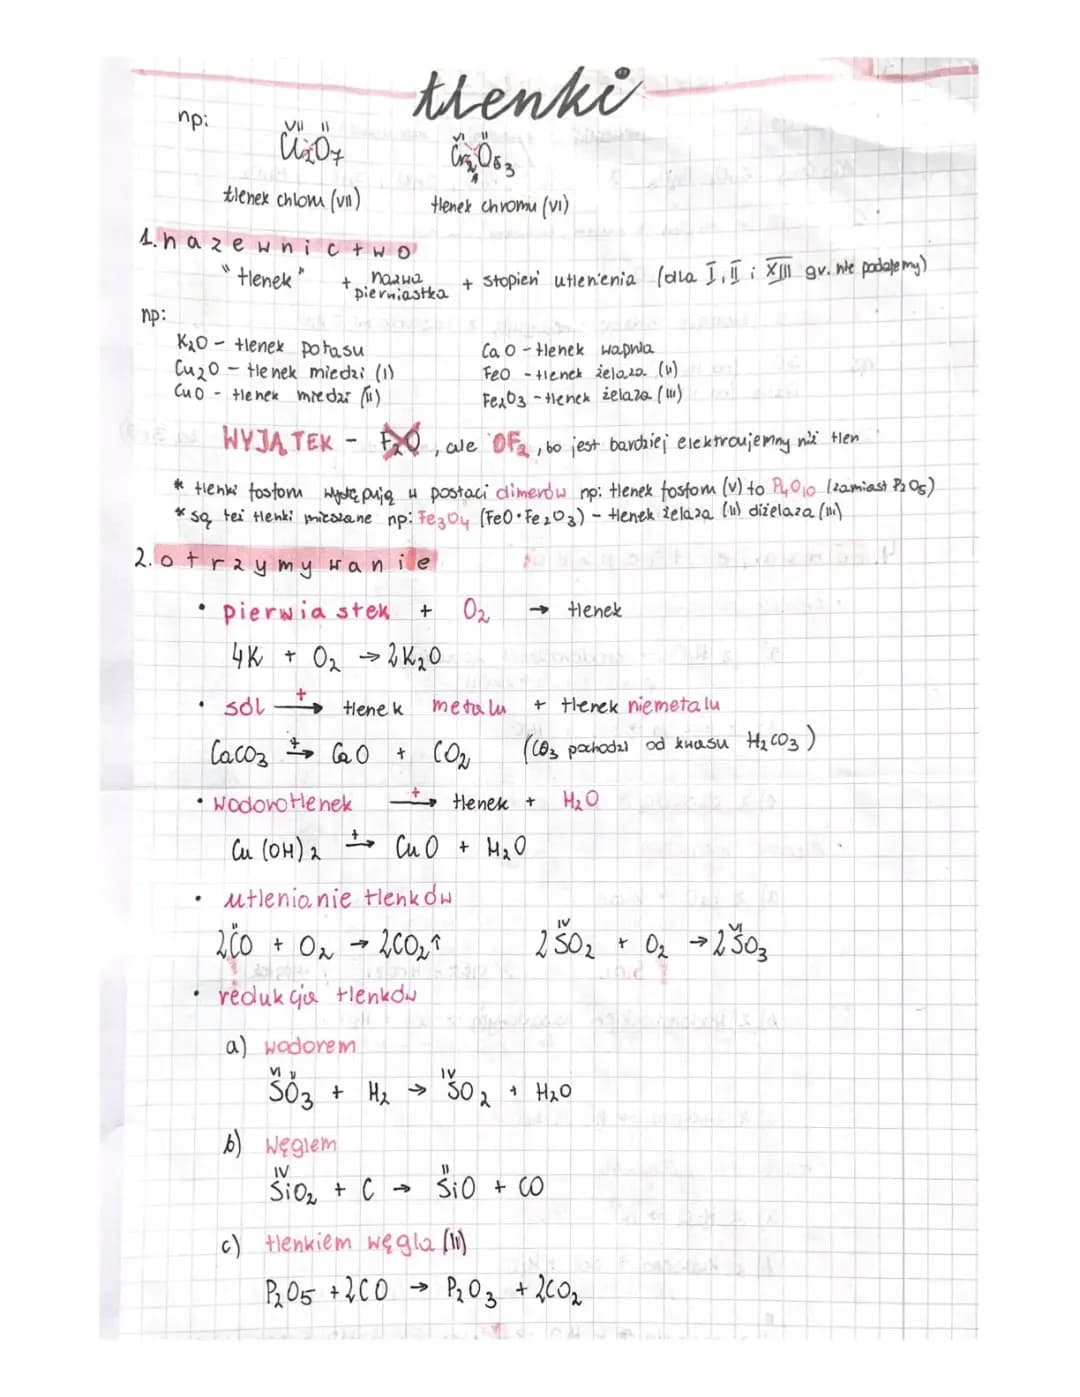 tlenki
np:
VII II
Cl2O7
VI II
Cr2O6 3
1
tlenek chloru (VII)
tlenek chromu (VI)
1. nazewnictwo
"tlenek" + nazwa pierwiastka + stopień utlenienia (dla I, II i XIII gr. nie podajemy)
np:
K2O - tlenek potasu
CaO - tlenek wapnia
Cu2O - tlenek miedzi (I)
FeO - tlenek żelaza (II)
CuO - tlenek miedzi (II)
Fe2O3 - tlenek żelaza (III)
WYJĄTEK - F2O, ale OF2, bo jest bardziej elektroujemny niż tlen
* tlenki fosforu występują w postaci dimerów np: tlenek fosforu (V) to P4O10 (zamiast P2O5)
* są też tlenki mieszane np: Fe3O4 (FeO·Fe2O3) - tlenek żelaza (II) diżelaza (III)
2. otrzymywanie
• pierwiastek + O2 → tlenek
4K + O2 → 2K2O
• sól +→ tlenek metalu + tlenek niemetalu
CaCO3 +→ CaO + CO2 (CO3 pochodzi od kwasu H2CO3)
• wodorotlenek +→ tlenek + H2O
Cu(OH)2 +→ CuO + H2O
• utlenianie tlenków
II
2CO + O2 → 2CO2↑
IV VI
2SO2 + O2 → 2SO3
• redukcja tlenków
a) wodorem
VI II IV
SO3 + H2 → SO2 + H2O
b) węglem
IV II
SiO2 + C → SiO + CO
c) tlenkiem węgla (II)
P2O5 + 2CO → P2O3 + 2CO2